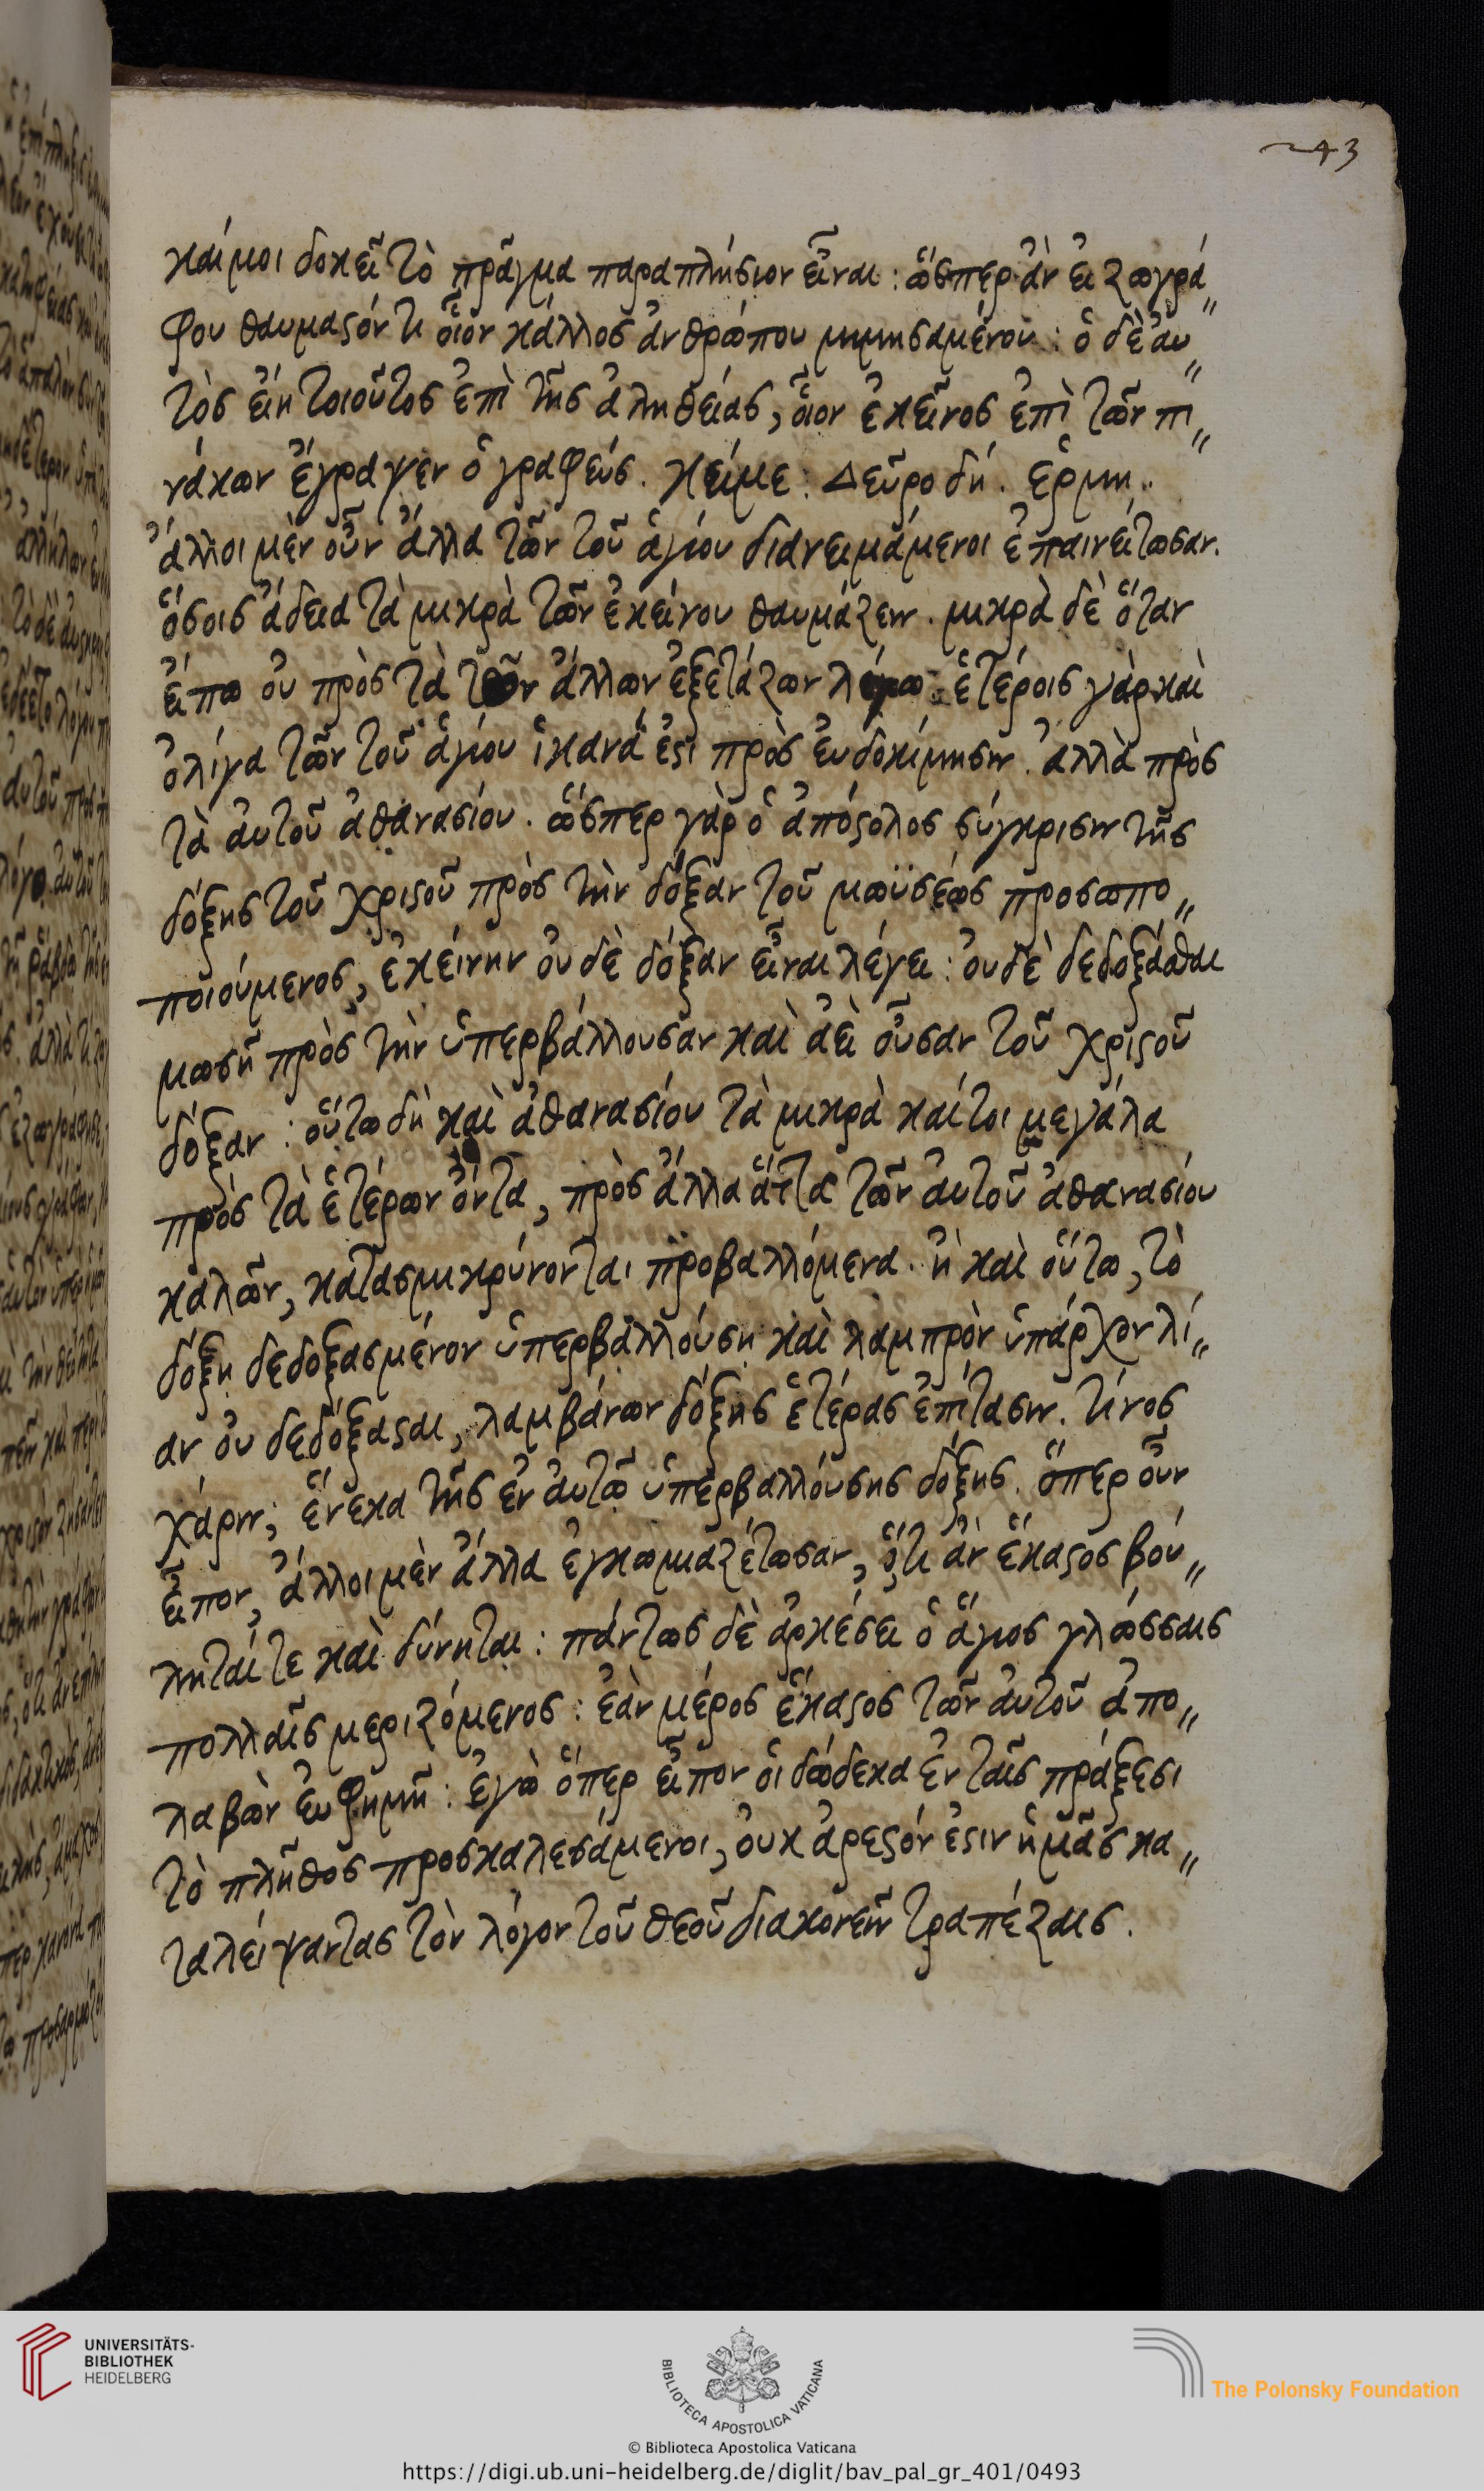 243
καίμοι δοκεῖ τὸ πρᾶγμα παραπλήσιον εἶναι : ὥσπερ ἂν εἰ ζωγρά„
φου θαυμαςόν τι οἷον κάλλος ἀνθρώπου μιμησαμένου : ὁ δὲ ἀυ„
τὸς εἴη τοιοῦτος ἐπὶ τῆς ἀληθείας, οἷον ἐκεῖνος ἐπὶ τῶν πι„
νάκων ἔγραψεν ὁ γραφεύς. κείμε : Δεῦρο δή. ἑρμη..
ἄλλοι μὲν οὖν ἄλλα τῶν τοῦ ἁγίου διανειμάμενοι ἐπαινείτωσαν.
ὅσοις ἄδεια τὰ μικρὰ τῶν ἐκείνου θαυμάζειν. μικρὰ δὲ ὅταν
εἴπω οὐ πρὸς τὰ τῶν ἄλλων ἐξετάζων λέγω : ἑτέροις γὰρ καὶ
ὀλίγα τῶν τοῦ ἁγίου ἱκανά ἐςι πρὸς ἐυδοκίμησιν. ἀλλὰ πρὸς
τὰ ἀυτοῦ ἀθανασίου. ὥσπερ γὰρ ὁ ἀπόςολος σύγκρισιν τῆς
δόξης τοῦ χριςοῦ πρὸς τὴν δόξαν τοῦ μωϋσέως προσωπο„
ποιούμενος, ἐκείνην οὐδὲ δόξαν εἶναι λέγει : οὐδὲ δεδοξάσθαι
μωσῆ πρὸς τὴν ὑπερβάλλουσαν καὶ ἀεὶ οὖσαν τοῦ χριςοῦ
δόξαν : οὕτω δὴ καὶ ἀθανασίου τὰ μικρὰ καίτοι μεγάλα
πρὸς τὰ ἑτέρων ὄντα, πρὸς ἄλλα ἄττα τῶν ἀυτοῦ ἀθανασίου
καλῶν, κατασμικρύνονται προβαλλόμενα. ἢ καὶ οὕτω, τὸ
δόξῃ δεδοξασμένον ὑπερβαλλούσῃ καὶ λαμπρὸν ὑπάρχον λί„
αν οὐ δεδόξαςαι, λαμβάνων δόξης ἑτέρας ἐπίτασιν. τίνος
χάριν; ἕνεκα τῆς ἐν ἀυτῷ ὑπερβαλλούσης δόξης. ὅπερ οὖν
εἶπον, ἄλλοι μὲν ἄλλα ἐγκωμιαζέτωσαν, ὅτι ἂν ἕκαςος βού„
ληταί τε καὶ δύνηται : πάντως δὲ ἀρκέσει ὁ ἅγιος γλώσσαις
πολλαῖς μεριζόμενος : ἐὰν μέρος ἕκαςος τῶν ἀυτοῦ ἀπο„
λαβὼν ἐυφημῇ : ἐγὼ ὅπερ εἶπον οἱ δώδεκα ἐν ταῖς πράξεσι
τὸ πλῆθος προσκαλεσάμενοι, οὐκ ἀρεςόν ἐςιν ἡμᾶς κα„
ταλείψαντας τὸν λόγον τοῦ θεοῦ διακονεῖν τραπέζαις.
UNIVERSITÄTS-
BIBLIOTHEK
HEIDELBERG
BIBLIOTECA APOSTOLICA VATICANA
The Polonsky Foundation
© Biblioteca Apostolica Vaticana
https://digi.ub.uni-heidelberg.de/diglit/bav_pal_gr_401/0493